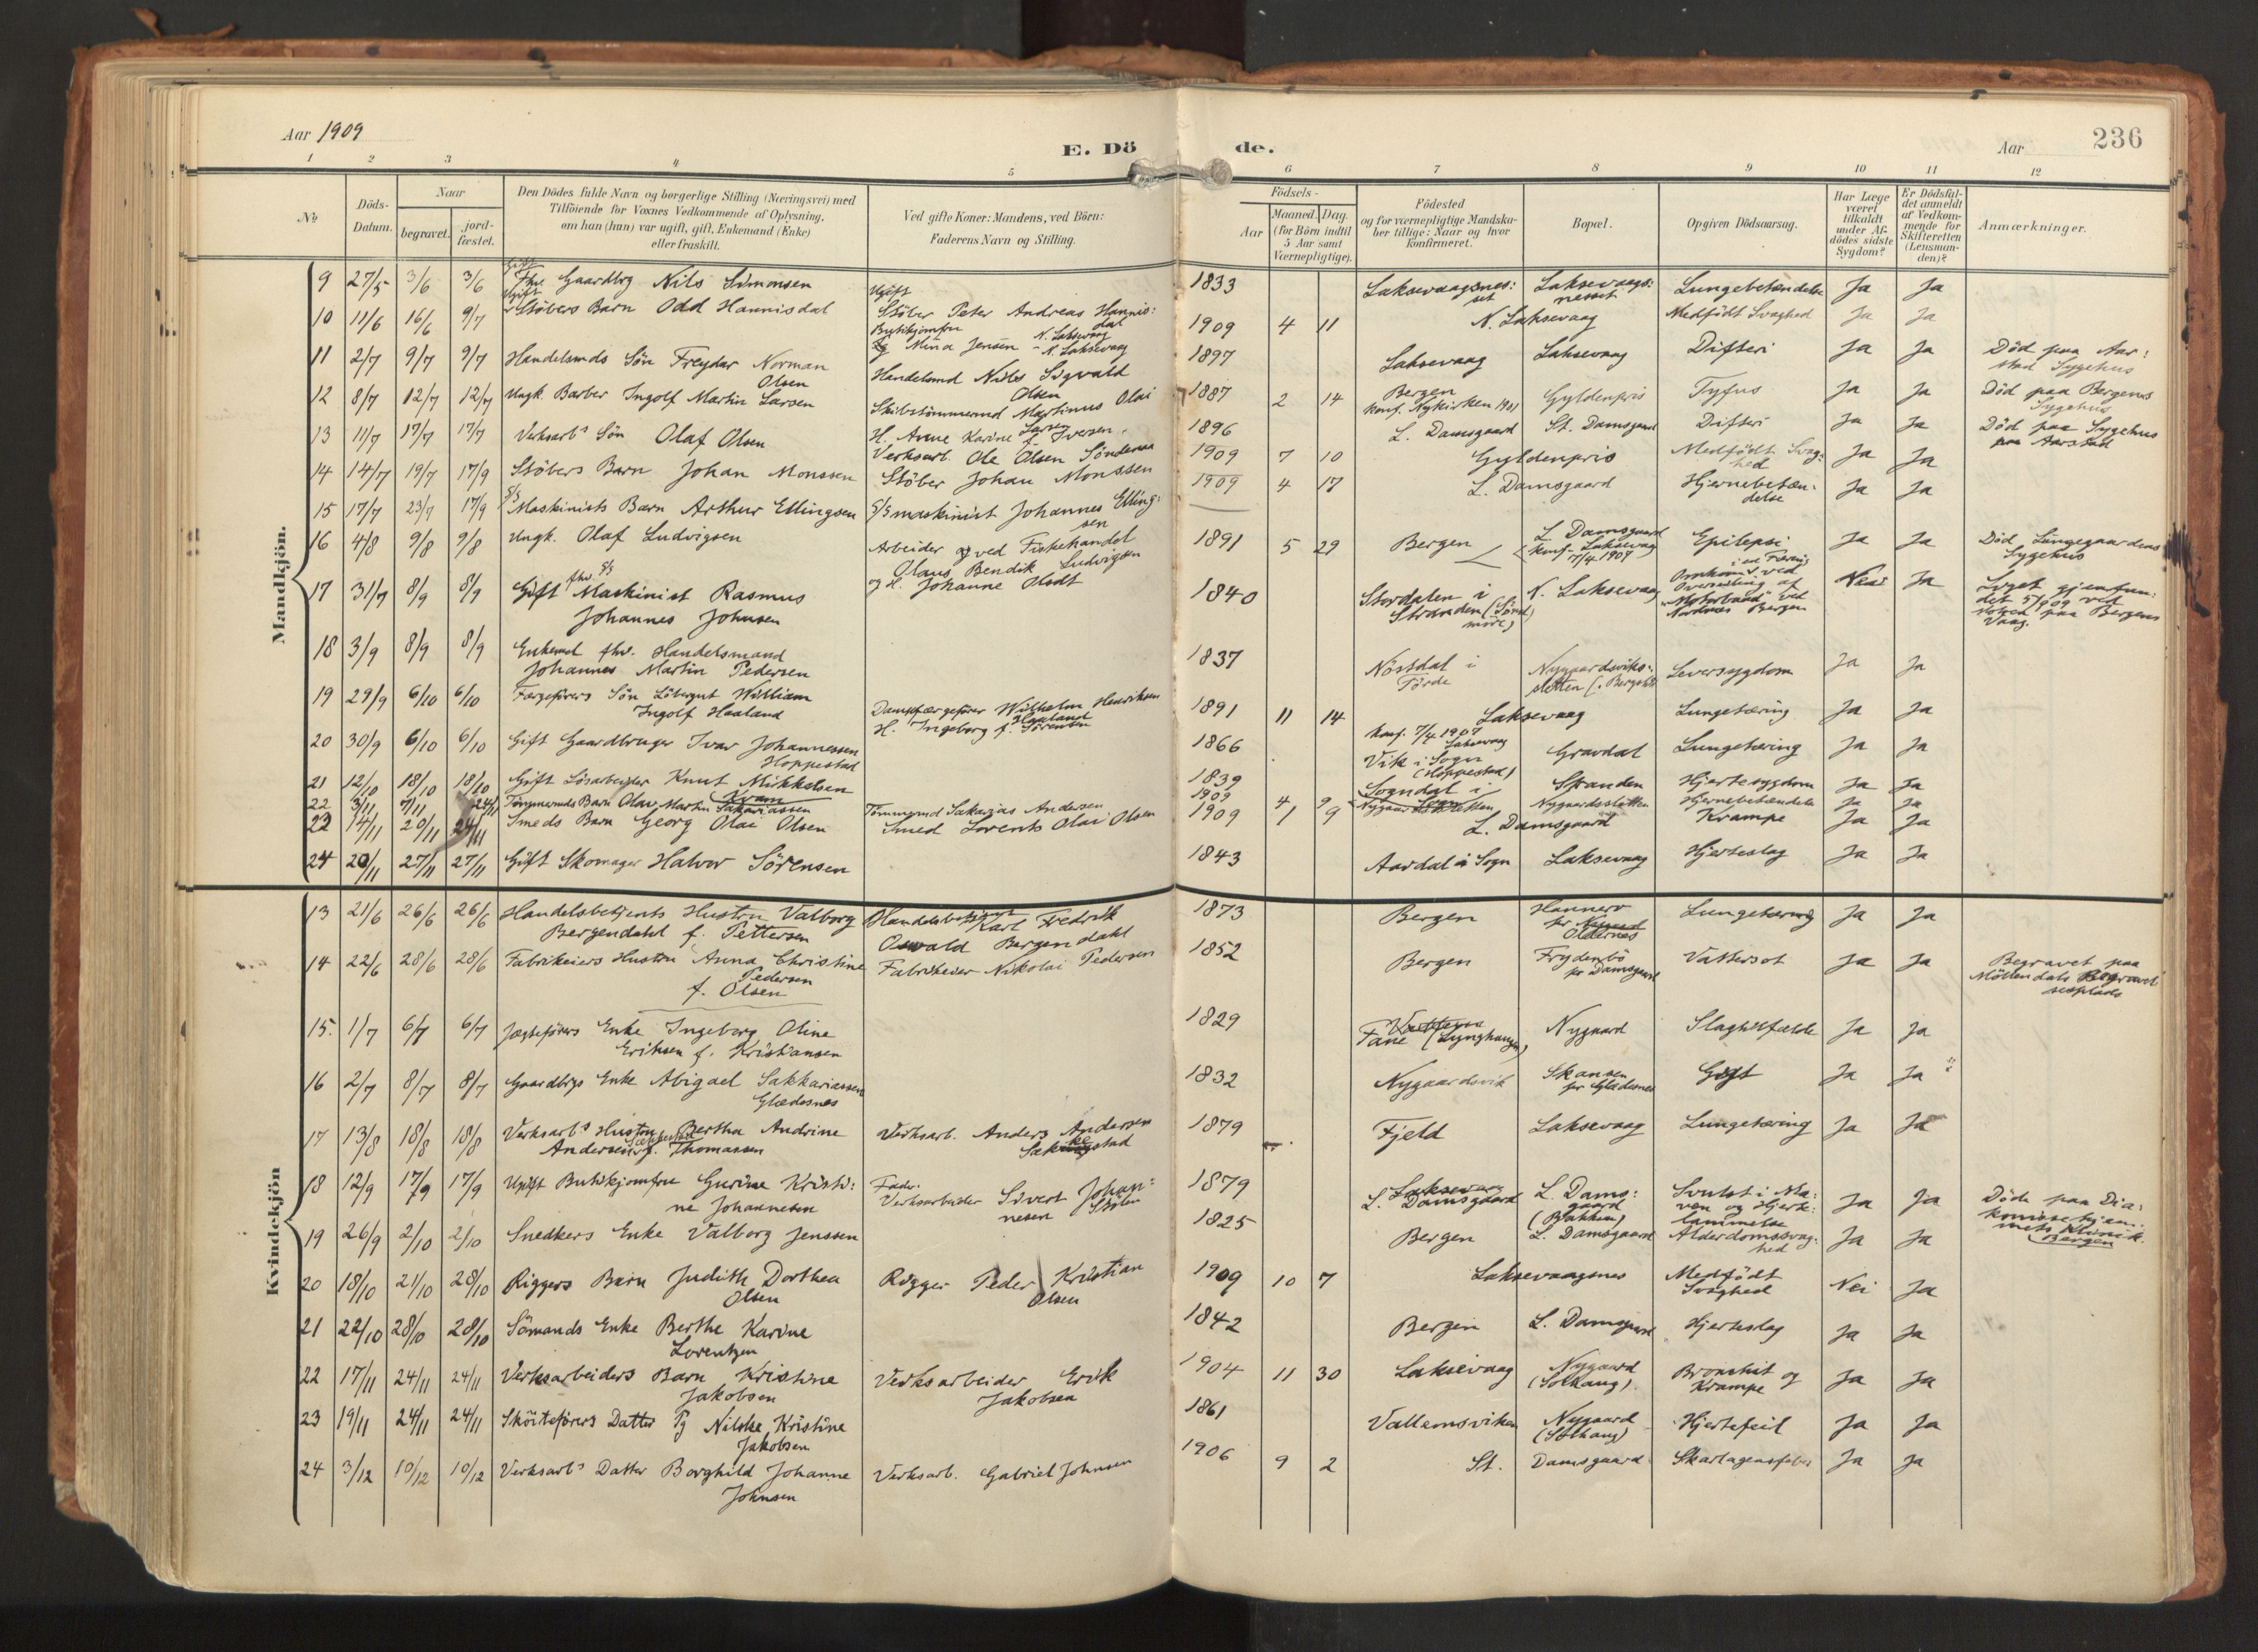 Aar 1909
E. Dö de.
Aar
236
1 2 3 4 5 6 7 8 9 10 11 12
№
Döds-
Datum.
Naar
begravet.
jord-
fæstet.
Den Dödes fulde Navn og borgerlige Stilling (Næringsvei) med
Tilföiende for Voxnes Vedkommende af Oplysning,
om han (hun) var ugift, gift, Enkemand (Enke)
eller fraskilt.
Ved gifte Koner: Mandens, ved Börn:
Faderens Navn og Stilling.
Födsels-
Aar
Maaned. Dag.
(for Börn indtil
5 Aar samt
Værnepligtige).
Födested
og for værnepligtige Mandska-
ber tillige: Naar og hvor
konfirmeret.
Bopæl.
Opgiven Dödsaarsag.
Har Læge
været
tilkaldt
under Af-
dödes sidste
Sygdom?
Er Dödsfal-
det anmeldt
af Vedkom-
mende for
Skifteretten
(Lensman-
den)?
Anmærkninger.
Mandkjön.
9 27/5 3/6 3/6 Gift Fhv. Gaardbrg Nils Simonsen 1833 Laksevaagsnes: Laksevaags: Lungebetændelse Ja Ja
set nesset
10 11/6 16/6 9/7 Stöbers Barn Odd Hannisdal Ugift Stöber Peter Andreas Hannis: 1909 4 11 N. Laksevaag Medfödt Svaghed Ja Ja
dal N. Laksevaag
Butikjomfru
og Mina Jensen - N. Laksevaag
11 2/7 9/7 9/7 Handelsmds Sön Freydar Norman Handelsmd Nils Sigvald 1897 Laksevaag Laksevaag Difteri Ja Ja Död paa Aar:
Olsen Olsen stad Sygehus
12 8/7 12/7 12/7 Ungk. Barber Ingolf Martin Larsen Skibstömmermd Martinus Olai 1887 2 14 Bergen Gyldenpris Tyfus Ja Ja Död paa Bergens
Larsen konf. Nykirken 1901 Sygehus
H. Anne Karine f. Iversen.
13 11/7 17/7 17/7 Verksarbs Sön Olaf Olsen Verksarb. Ole Olsen Söndenaa 1896 L. Damsgaard St. Damsgaard Difteri Ja Ja Död paa Sygehus
paa Aarstad
14 14/7 19/7 17/9 Stöbers Barn Johan Monssen Stöber Johan Monssen 1909 7 10 Gyldenpris Medfödt Svag: Ja Ja
hed
15 17/7 23/7 17/9 S/S Maskinists Barn Arthur Ellingsen S/S maskinist Johannes Elling: 1909 4 17 L. Damsgaard Hjernebetæn- Ja Ja
sen delse
16 4/8 9/8 9/8 Ungk. Olaf Ludvigsen Arbeider ved Fiskehandel 1891 5 29 Bergen L. Damsgaard Epilepsi Ja Ja Död Lungegaardens
Olaus Bendik Ludvigsen konf. Laksevaag 7/4 1907 Sygehus
og H. Johanne Olsdt
17 31/7 8/9 8/9 Gift fhv. S/S Maskinist Rasmus 1840 Stordalen i N. Laksevaag Omkom ved Nei Ja Liget gjenfun:
Johannes Johnsen Stranden (Sönd möre) Overseiling af det 5/9 09 ved
"Motorbaad" ved Nordnes Bergen paa Bergens
Vaag.
18 3/9 8/9 8/9 Enkemd fhv. Handelsmand 1837 Nöstdal i Nygaardsviks: Leversygdom Ja Ja
Johannes Martin Pedersen Förde sletten
19 29/9 6/10 6/10 Færgeförers Sön Löbegut William Dampfærgeförer Wilhelm Henriksen 1891 11 14 Laksevaag Lungetæring Ja Ja
Ingolf Haaland Haaland
H. Ingeborg f. Sörensen konf. 7/4 1907
Laksevaag
20 30/9 6/10 6/10 Gift Gaardbruger Ivar Johannessen 1866 Vik i Sogn Gravdal Lungetæring Ja Ja
Hoppestad (Hoppestad)
21 12/10 18/10 18/10 Gift Lösarbeider Knut Mikkelsen 1839 Sogndal i Stranden Hjertesygdom Ja Ja
Kvam Sogn
22 3/11 7/11 24/11 Tömmermds Barn Olav Martin Sakariassen Tömmermd Sakarias Andersen 1909 4 9 Nygaardssletten Nygaardssletten Hjernebetændelse Ja Ja
23 14/11 20/11 24/11 Smeds Barn Georg Olai Olsen Smed Lorents Olai Olsen 1909 1 9 L. Damsgaard Krampe Ja Ja
24 20/11 27/11 27/11 Gift Skomager Halvor Sörensen 1843 Aardal i Sogn Laksevaag Hjerteslag Ja Ja
Kvindekjön
13 21/6 26/6 26/6 Handelsbetjents Hustru Valborg Handelsbetjent Karl Fredrik 1873 Bergen Hannero Lungetæring Ja Ja
Bergendahl f. Pettersen Oswald Bergendahl pr Nygaard
Oldernes
14 22/6 28/6 28/6 Fabrikeiers Hustru Anna Christine Fabrikeier Nikolai Pedersen 1852 Bergen Frydenbö Vattersot Ja Ja Begravet paa
Pedersen pr Damsgaard Möllendals Begravel
f. Olsen sesplads
15. 1/7 6/7 6/7 Jagteförers Enke Ingeborg Oline 1829 Nygaard Slagtilfælde Ja ja
Eriksen f. Kristiansen Fane (Lynghaugen)
16 2/7 8/7 8/7 Gaardbrgs Enke Abigael Sakkariassen 1832 Nygaardsvik Skansen Gigt Ja Ja
Glædesnes pr Glædesnes
17 13/8 18/8 18/8 Verksarbs Hustru Bertha Andrine Verksarb. Anders Andersen 1879 Fjeld Laksevaag Lungetæring Ja Ja
Andersen f. Thomassen
18 12/9 17/9 17/9 Ugift Butikjomfru Gurine Kristi: Fader. 1879 Laksevaag L. Dams: Svulst i Ma: Ja Ja Död paa Dia:
ne Johannesen Verksarbeider Sivert Johan: L. Damsgaard gaard ven og Hjerte: konissehjem-
nesen Stölen (Bakken) lammelse mets Klinik.
Bergen
19 26/9 2/10 2/10 Snedkers Enke Valborg Jenssen 1825 Bergen L. Damsgaard Alderdomssvag- Ja Ja
hed
20 18/10 21/10 28/10 Riggers Barn Judith Dorthea Rigger Peder Kristian 1909 10 7 Laksevaagsnes Medfödt Nei Ja
Olsen Olsen Svaghed
21 22/10 28/10 28/10 Sömands Enke Berthe Karine 1842 Bergen L. Damsgaard Hjerteslag Ja Ja
Lorentzen
22 17/11 24/11 24/11 Verksarbeiders Barn Kristine Verksarbeider Erik 1904 11 30 Laksevaag Nygaard Bronchit og Ja Ja
Jakobsen Jakobsen (Solhaug). Krampe
23 19/11 24/11 24/11 Sköiteförers Datter Pg Nilske Kristine 1861 Vallemsviken Nygaard Hjertefeil Ja Ja
Jakobsen (Solhaug)
24 3/12 10/12 10/12 Verksarbs Datter Borghild Johanne Verksarb. Gabriel Johnsen 1906 9 2 St. Damsgaard Skarlagensfeber Ja Ja
Johnsen